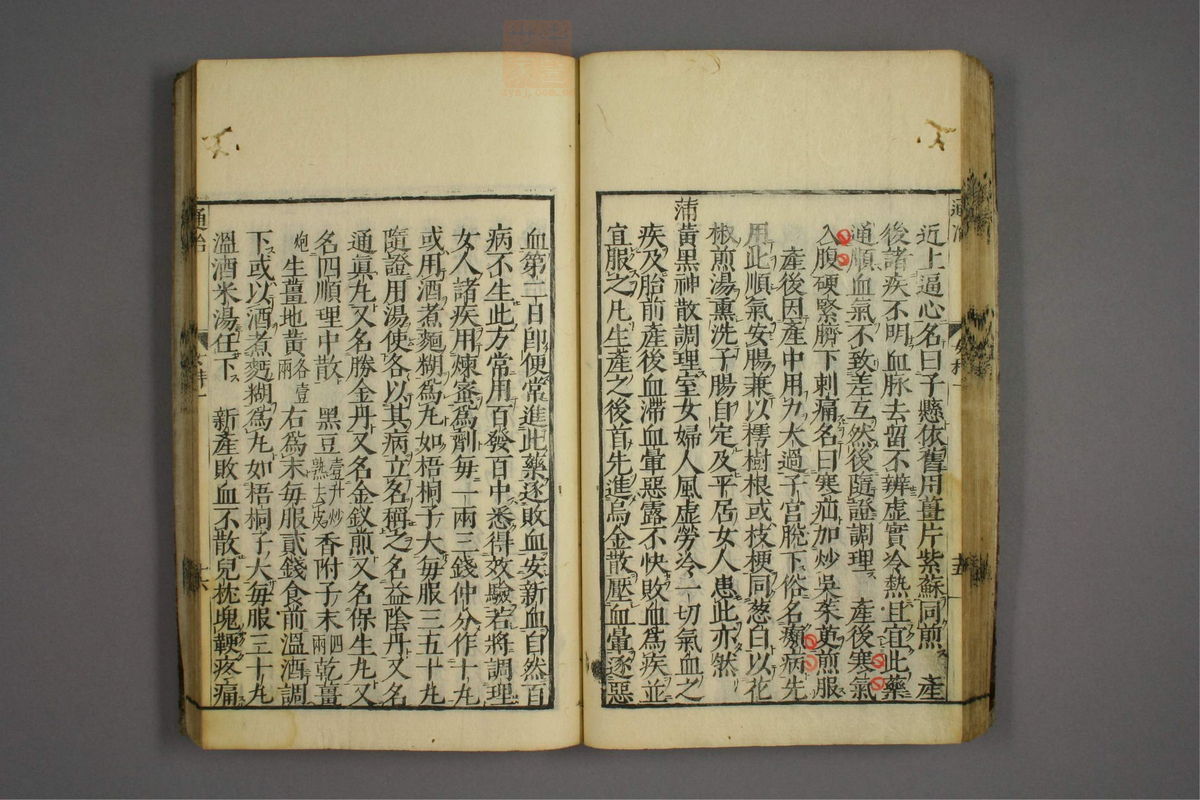 近上逼心名曰子懸依舊用薑片紫蘇同煎　產
後諸疾不明血脉去留不辨虛實冷熱且宜此藥
通順血氣不致差互然後隨證調理　產後寒氣
入腹硬緊臍下刺痛名曰寒疝加炒吳茱萸煎服
產後因產中用力太過子宮脫下俗名癩病先
用此順氣安腸兼以樗樹根或枝梗同葱白以花
椒煎湯熏洗子腸自定及平居女人患此亦然
蒲黃黑神散調理室女婦人風虛勞冷一切氣血之
疾及胎前產後血滯血暈惡露不快敗血為疾並
宜服之凡生產之後首先進烏金散壓血暈逐惡
血第二日卽便常進此藥逐敗血安新血自然百
病不生此方常用百發百中悉得效驗若將調理
女人諸疾用煉蜜為劑每一兩三錢仲分作十九
或用酒煮麵糊為丸如梧桐子大每服三五十丸
隨證用湯使各以其病立名稱之名益陰丹又名
通真丸又名勝金丹又名金釵煎又名保生丸又
名四順理中散　黑豆壹升炒熟去皮香附子末四兩乾薑
炮生薑地黃各壹兩右為末每服貳錢食前溫酒調
下或以酒煮麪糊為丸如梧桐子大每服三十丸
溫酒米湯任下　新產敗血不散兒枕塊鞕疼痛
通治